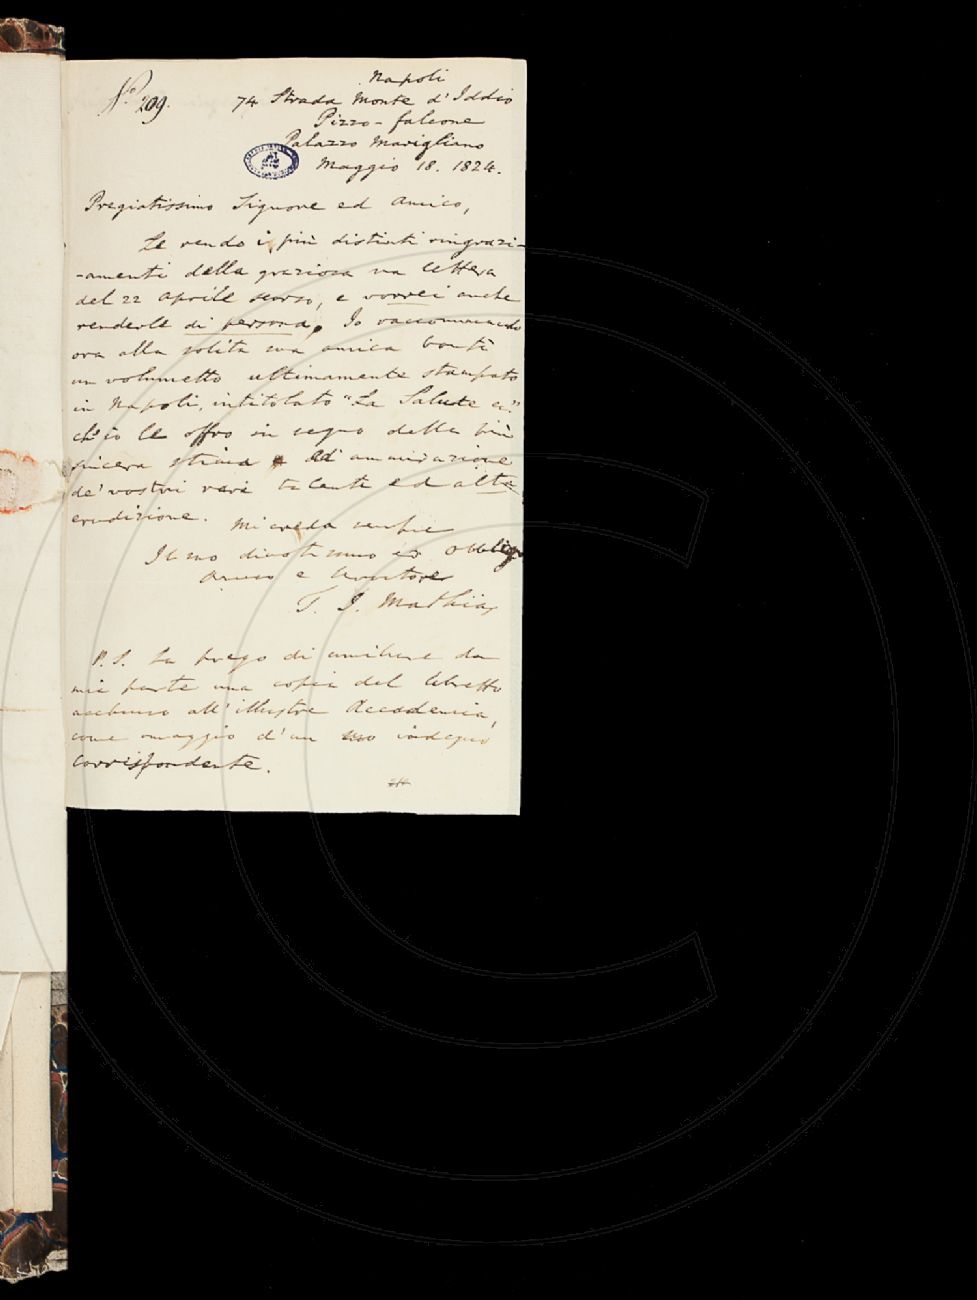 Napoli
No. 209. 74 Strada Monte d'Iddio
Pizzo-falcone
Palazzo Marigliano
Maggio 18. 1824.
Pregiatissimo Signore ed Amico,
Le rendo i più distinti ringrazi-
-amenti della graziosa sua lettera
del 22 Aprile scorso, e vorrei anche
renderle di persona. Io raccommando
ora alla solita sua amica bontà
un volumetto ultimamente stampato
in Napoli, intitolato "La Salute ec."
ch'io le offro in segno della più
sincera stima ed ammirazione
de' vostri rari talenti ed alta
erudizione. Mi creda sempre
Il suo divotissimo ed obbligo
Amico e Servitore
T. J. Mathias
P.S. La prego di umiliare da
mia parte una copia del libretto
acchiuso all'illustre Accademia,
come omaggio d'un suo indegno
Corrispondente.